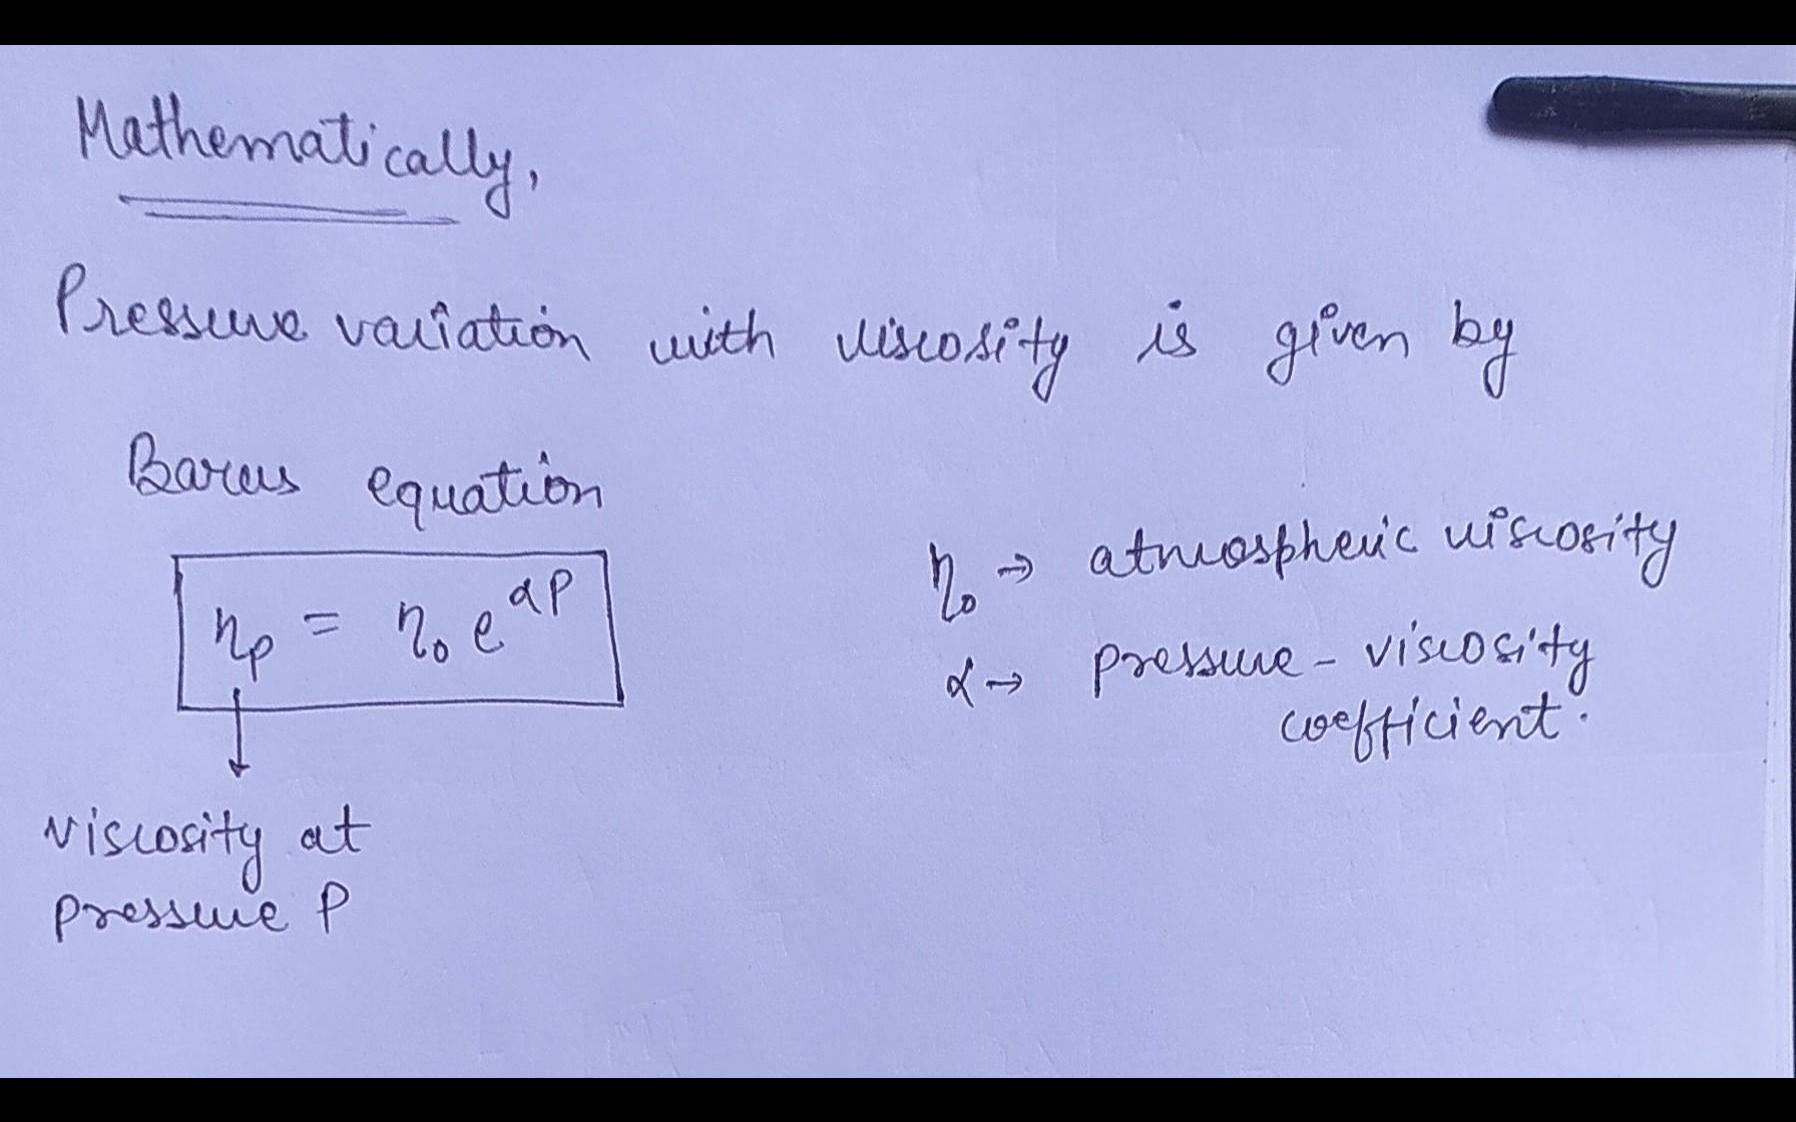 Mathematically,
Pressure variation with viscosity is given by
Barus equation
ηp = η₀ e^αP
η₀ → atmospheric viscosity
α → pressure - viscosity
coefficient.
viscosity at
pressure P